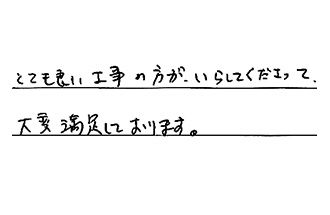 とても良い工事の方が、いらしてくださって、
大変満足しております。